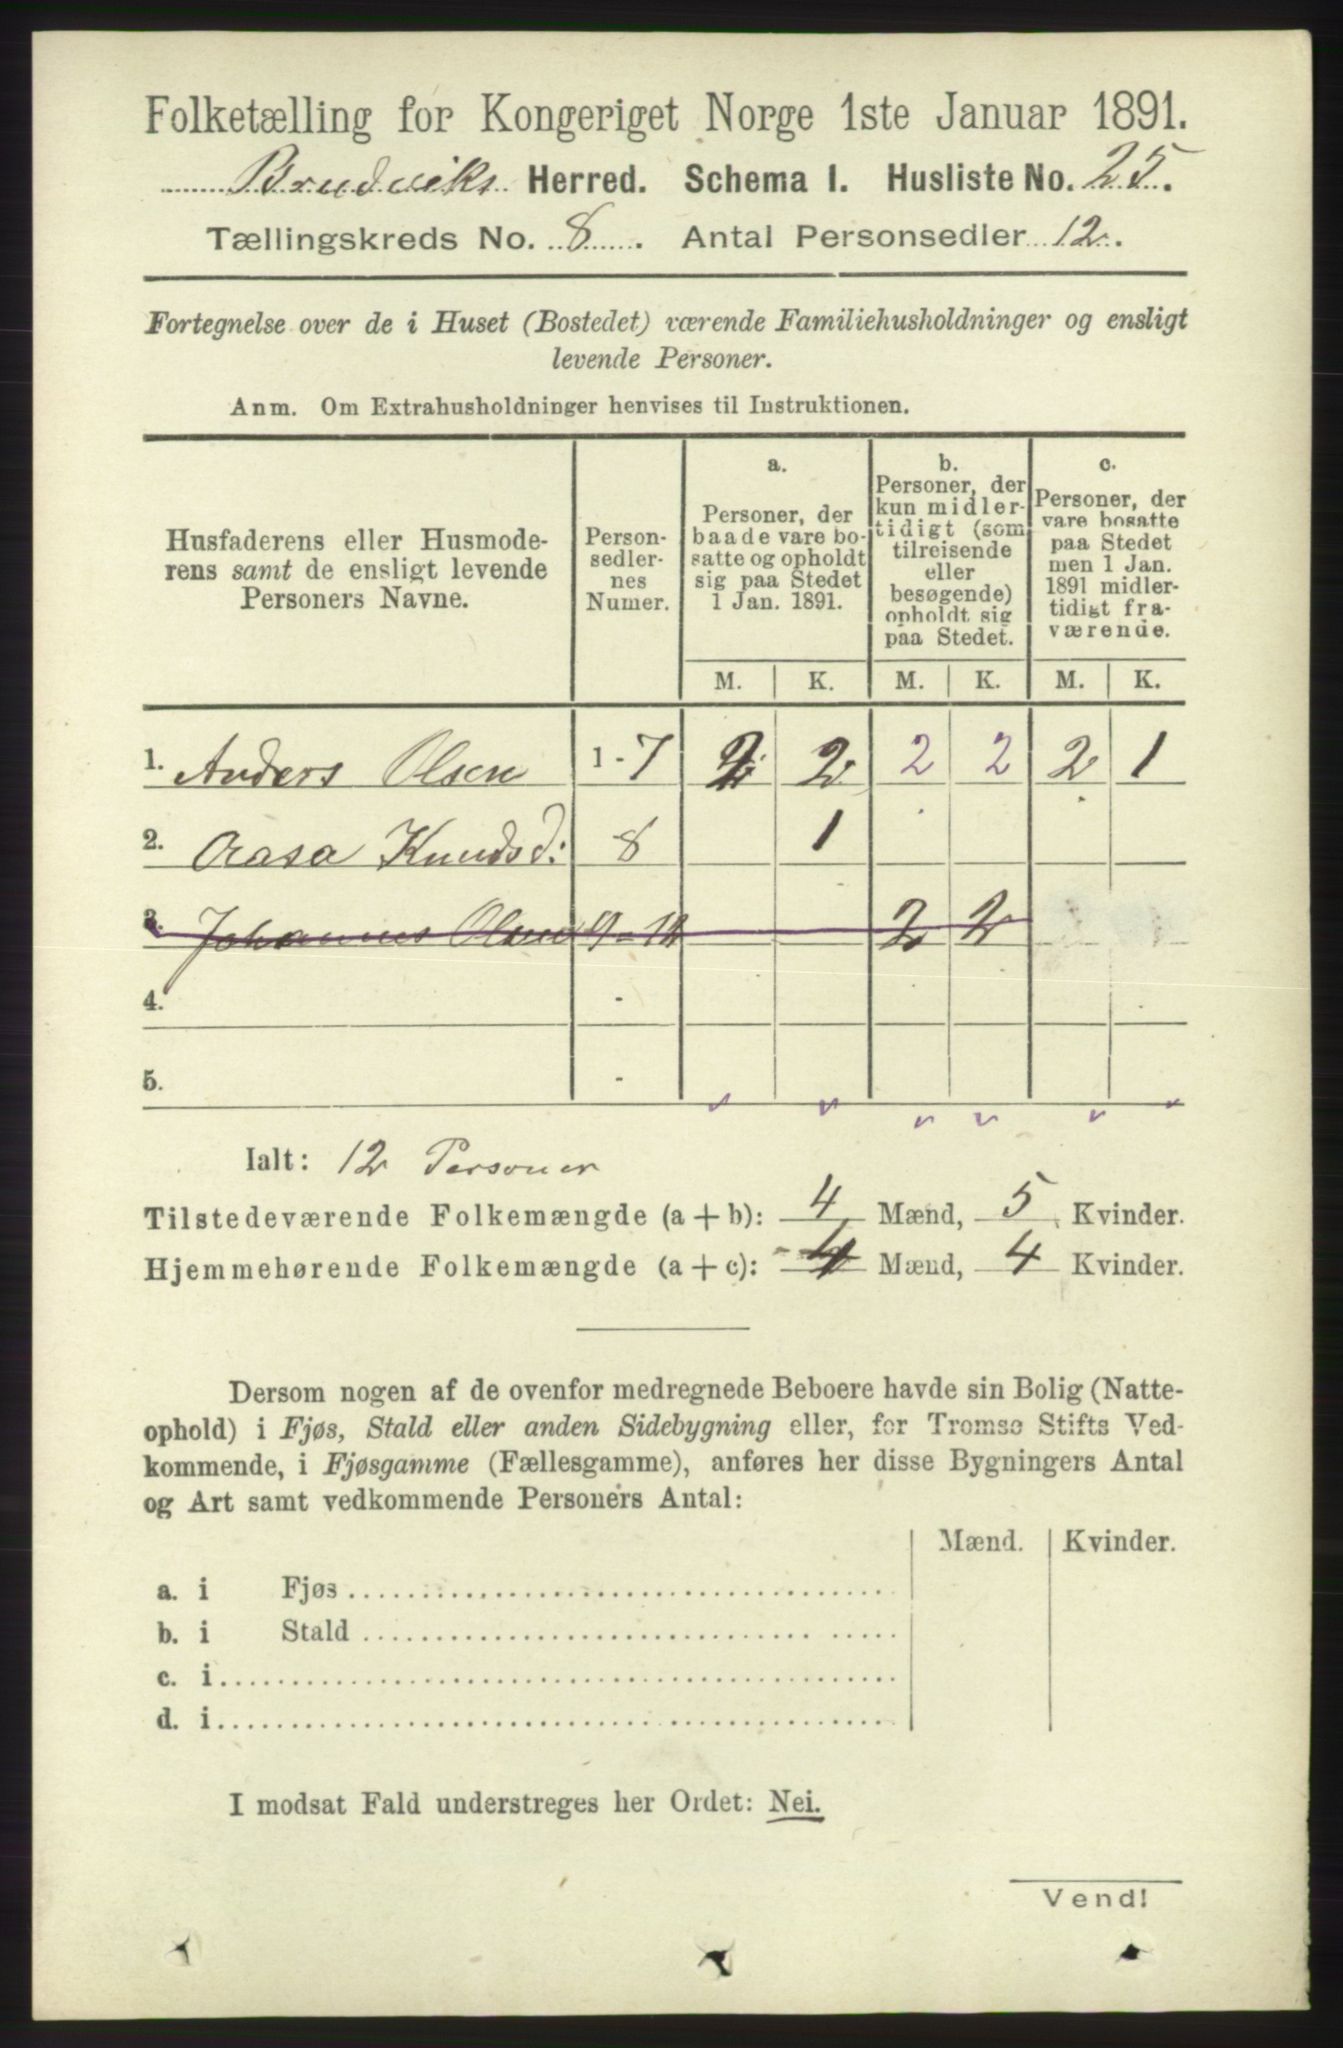 Folketælling for Kongeriget Norge 1ste Januar 1891.
Brudviks Herred. Schema 1. Husliste No. 25.
Tællingskreds No. 8. Antal Personsedler 12.
Fortegnelse over de i Huset (Bostedet) værende Familiehusholdninger og ensligt
levende Personer.
Anm. Om Extrahusholdninger henvises til Instruktionen.
Husfaderens eller Husmode-
rens samt de ensligt levende
Personers Navne.
Person-
sedler-
nes
Numer.
a.
Personer, der
baade vare bo-
satte og opholdt
sig paa Stedet
1 Jan. 1891.
b.
Personer, der
kun midler-
tidigt (som
tilreisende
eller
besøgende)
opholdt sig
paa Stedet.
c.
Personer, der
vare bosatte
paa Stedet
men 1 Jan.
1891 midler-
tidigt fra-
værende.
M. K. M. K. M. K.
1. Anders Olsen 1-7 2 2 2 2 2 1
2. Aasa Knudsd: 8 1
3. Johannes Olsen 9-12 2 2
4. -
5. -
Ialt: 12 Personer
Tilstedeværende Folkemængde (a + b): 4 Mænd, 5 Kvinder.
Hjemmehørende Folkemængde (a + c): 4 Mænd, 4 Kvinder.
Dersom nogen af de ovenfor medregnede Beboere havde sin Bolig (Natte-
ophold) i Fjøs, Stald eller anden Sidebygning eller, for Tromsø Stifts Ved-
kommende, i Fjøsgamme (Fællesgamme), anføres her disse Bygningers Antal
og Art samt vedkommende Personers Antal:
Mænd. Kvinder.
a. i Fjøs
b. i Stald
c. i
d. i
I modsat Fald understreges her Ordet: Nei.
Vend!